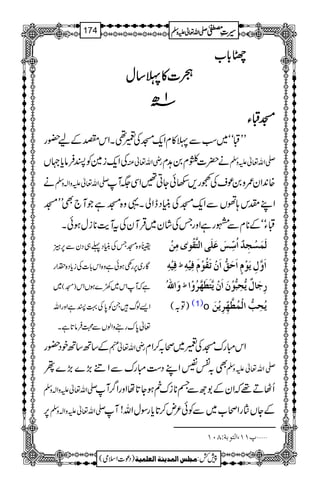 سیرتِ مصطفی صلی اللہ تعالیٰ علیہ وسلم 174
چھٹا باب
ہجرت کا پہلا سال
۱ھ
مسجد قباء
’’قبا‘‘ میں سب سے پہلا کام ایک مسجد کی تعمیر تھی۔ اس مقصد کے لیے حضور
صلی اللہ تعالیٰ علیہ وسلم نے حضرت کلثوم بن ہدم رضی اللہ تعالیٰ عنہ کی ایک زمین کو پسند فرمایا جہاں
خاندان عمرو بن عوف کی کھجوریں سکھائی جاتی تھیں اسی جگہ آپ صلی اللہ تعالیٰ علیہ والہ وسلم نے
اپنے مقدس ہاتھوں سے ایک مسجد کی بنیاد ڈالی۔ یہی وہ مسجد ہے جو آج بھی ’’مسجد
قباء‘‘ کے نام سے مشہور ہے اور جس کی شان میں قرآن کی یہ آیت نازل ہوئی۔
لَمَسْجِدٌ اُسِّسَ عَلَى التَّقْوٰى مِنْ
اَوَّلِ يَوْمٍ اَحَقُّ اَنْ تَقُوْمَ فِيْهِ ؕ فِيْهِ
رِجَالٌ يُّحِبُّوْنَ اَنْ يَّتَطَهَّرُوْا ؕ وَاللّٰهُ
يُحِبُّ الْمُطَّهِّرِيْنَ o (۱) (توبہ)
یقیناً وہ مسجد جس کی بنیاد پہلے ہی دن سے پرہیز
گاری پر رکھی ہوئی ہے وہ اس بات کی زیادہ حقدار
ہے کہ آپ اس میں کھڑے ہوں اس (مسجد) میں
ایسے لوگ ہیں جن کو پاکی بہت پسند ہے اور اللہ
تعالیٰ پاک رہنے والوں سے محبت فرماتا ہے۔
اس مبارک مسجد کی تعمیر میں صحابہ کرام رضی اللہ تعالیٰ عنہم کے ساتھ ساتھ خود حضور
صلی اللہ تعالیٰ علیہ وسلم بھی بہ نفس نفیس اپنے دست مبارک سے اتنے بڑے بڑے پتھر
اُٹھاتے تھے کہ ان کے بوجھ سے جسم نازک خم ہو جاتا تھا اور اگر آپ صلی اللہ تعالیٰ علیہ والہ وسلم
کے جاں نثار اصحاب میں سے کوئی عرض کرتا یا رسول اللہ! آپ صلی اللہ تعالیٰ علیہ والہ وسلم پر
۔۔۔۔۔ پ۱۱، التوبۃ: ۱۰۸
پیش کش: مجلس المدینۃ العلمیۃ (دعوتِ اسلامی)